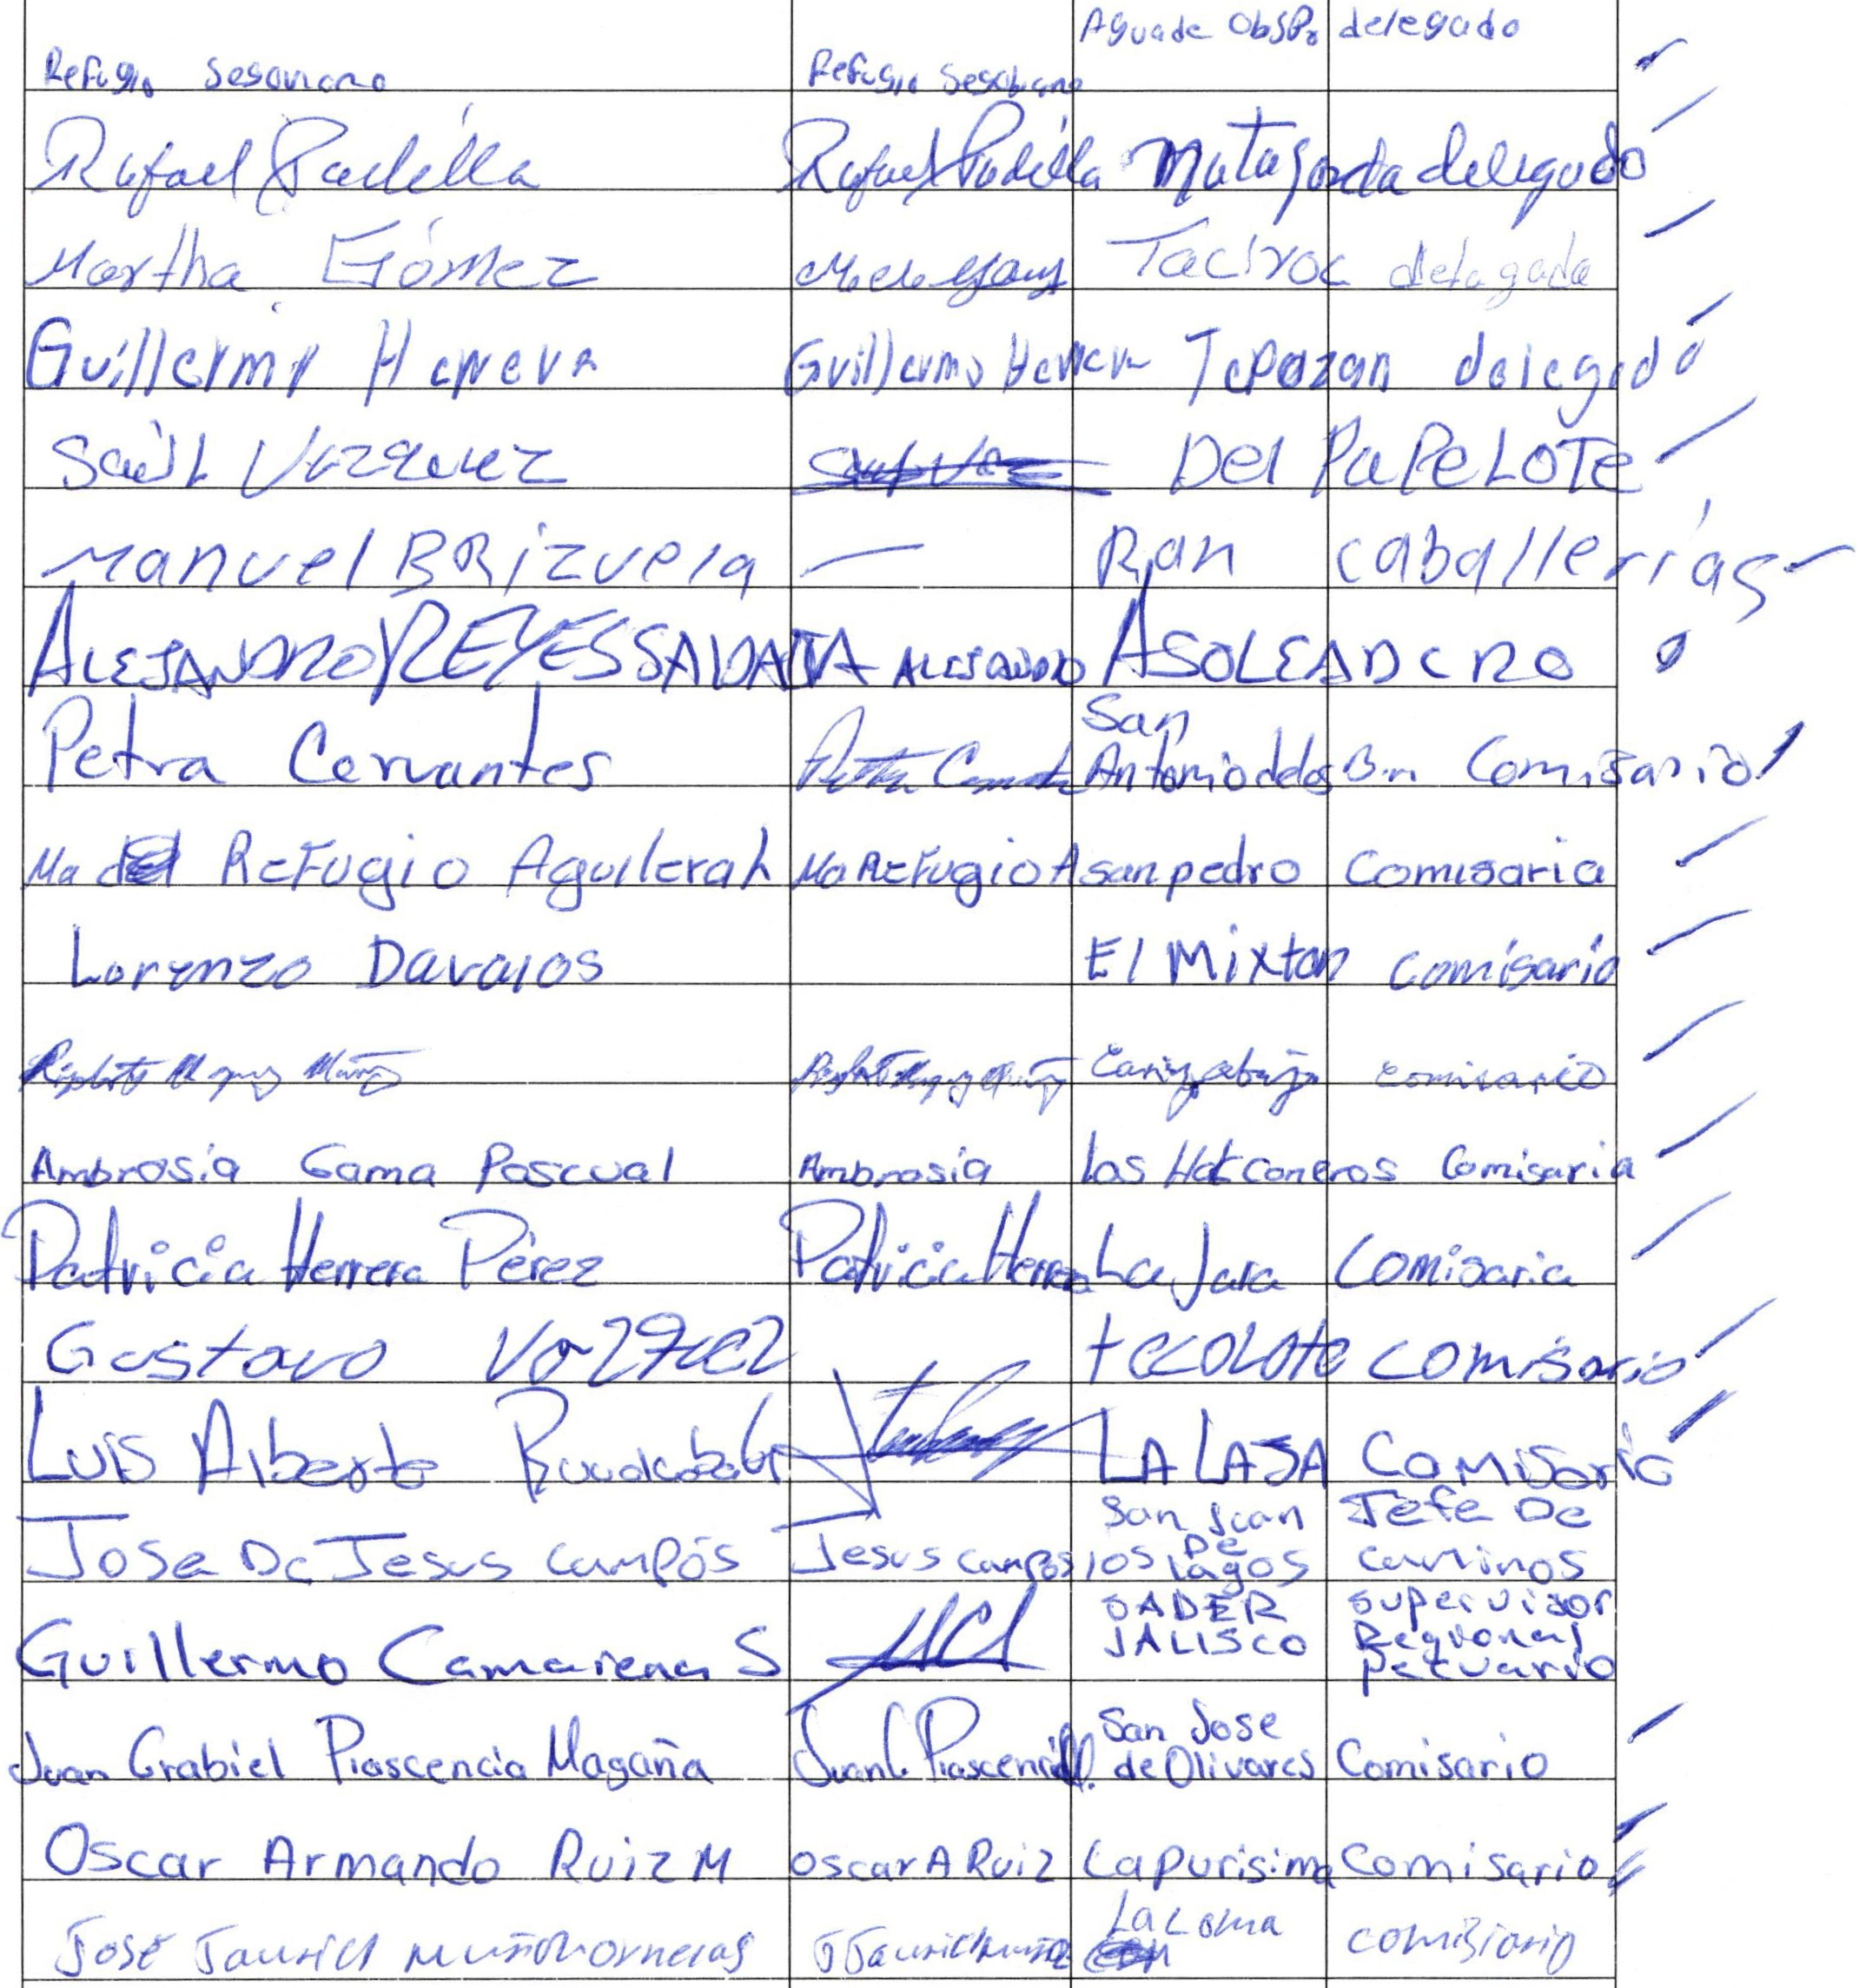 Refugio Seseviano Refugio Aguade ObSPo delegado
Rafael Padilla Rafael Padilla Matagorda delegado
Martha Gómez Taciroc delagada
Guillermo Herrera Guillermo Herrera Tepozan delegado
Saúl Vazquez Del PaPeLOTe
Manuel BRizuela Ran caballerías
ALEJANDRO REYES ALEJANDRO ASOLEADERO
Petra Cervantes San
Antonio de los Comisario
Ma del Refugio Aguilera h Ma Refugio A san pedro Comisaria
Lorenzo Davalos El Mixton comisario
comisario
Ambrosia Gama Pascual Ambrosia Los Halconeros Comisaria
Patricia Herrera Pérez Patricia Herrera La Jara Comisaria
Gustavo Vazquez tecolote comisario
Luis Alberto LA LAJA Comisario
Jose De Jesus campós Jesus campos San Juan De los Lagos Jefe De caminos
Guillermo Camarena S SADER JALISCO supervisor Regional pecuario
Juan Grabiel Plascencia Magaña Juan G. Plascencia San Jose de Olivares Comisario
Oscar Armando Ruiz M oscar A Ruiz La purisima Comisario
José La Loma comisiario